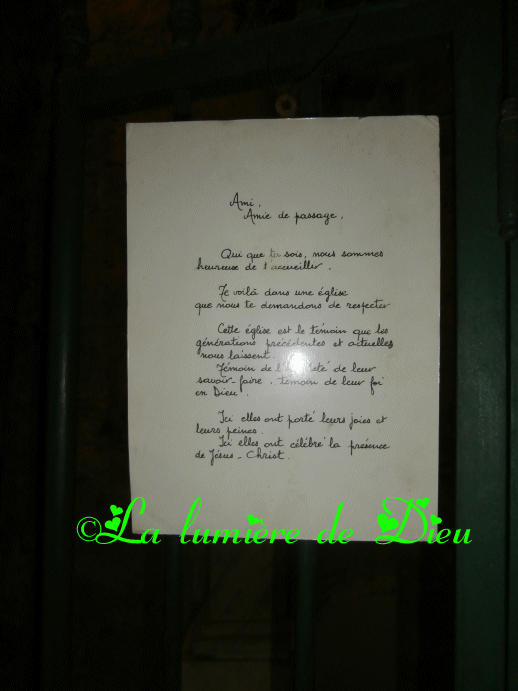 Ami,
Amie de passage,
Qui que tu sois, nous sommes
heureuse de t'accueillir.
Te voilà dans une église
que nous te demandons de respecter
Cette église est le témoin que les
générations précédentes et actuelles
nous laissent.
Témoin de leur
savoir-faire, témoin de leur foi
en Dieu.
Ici elles ont porté leurs joies et
leurs peines.
Ici elles ont célébré la présence
de Jésus-Christ.
©La lumière de Dieu